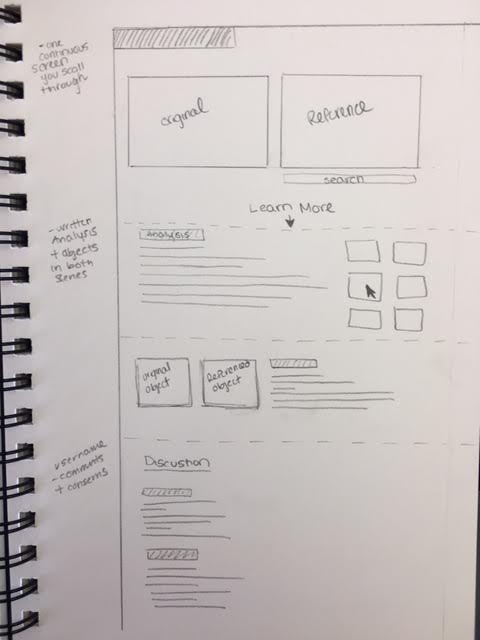 - one
continuous
screen
you scall
through
original
Reference
search
Learn More
- written
Analysis
+ objects
in both
scenes
Analysis
original
object
Referenced
object
username
- comments
+ conserns
Discustion